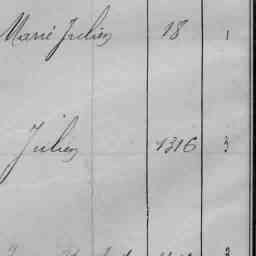 Marie Julien 18 1
Julien 1316 3